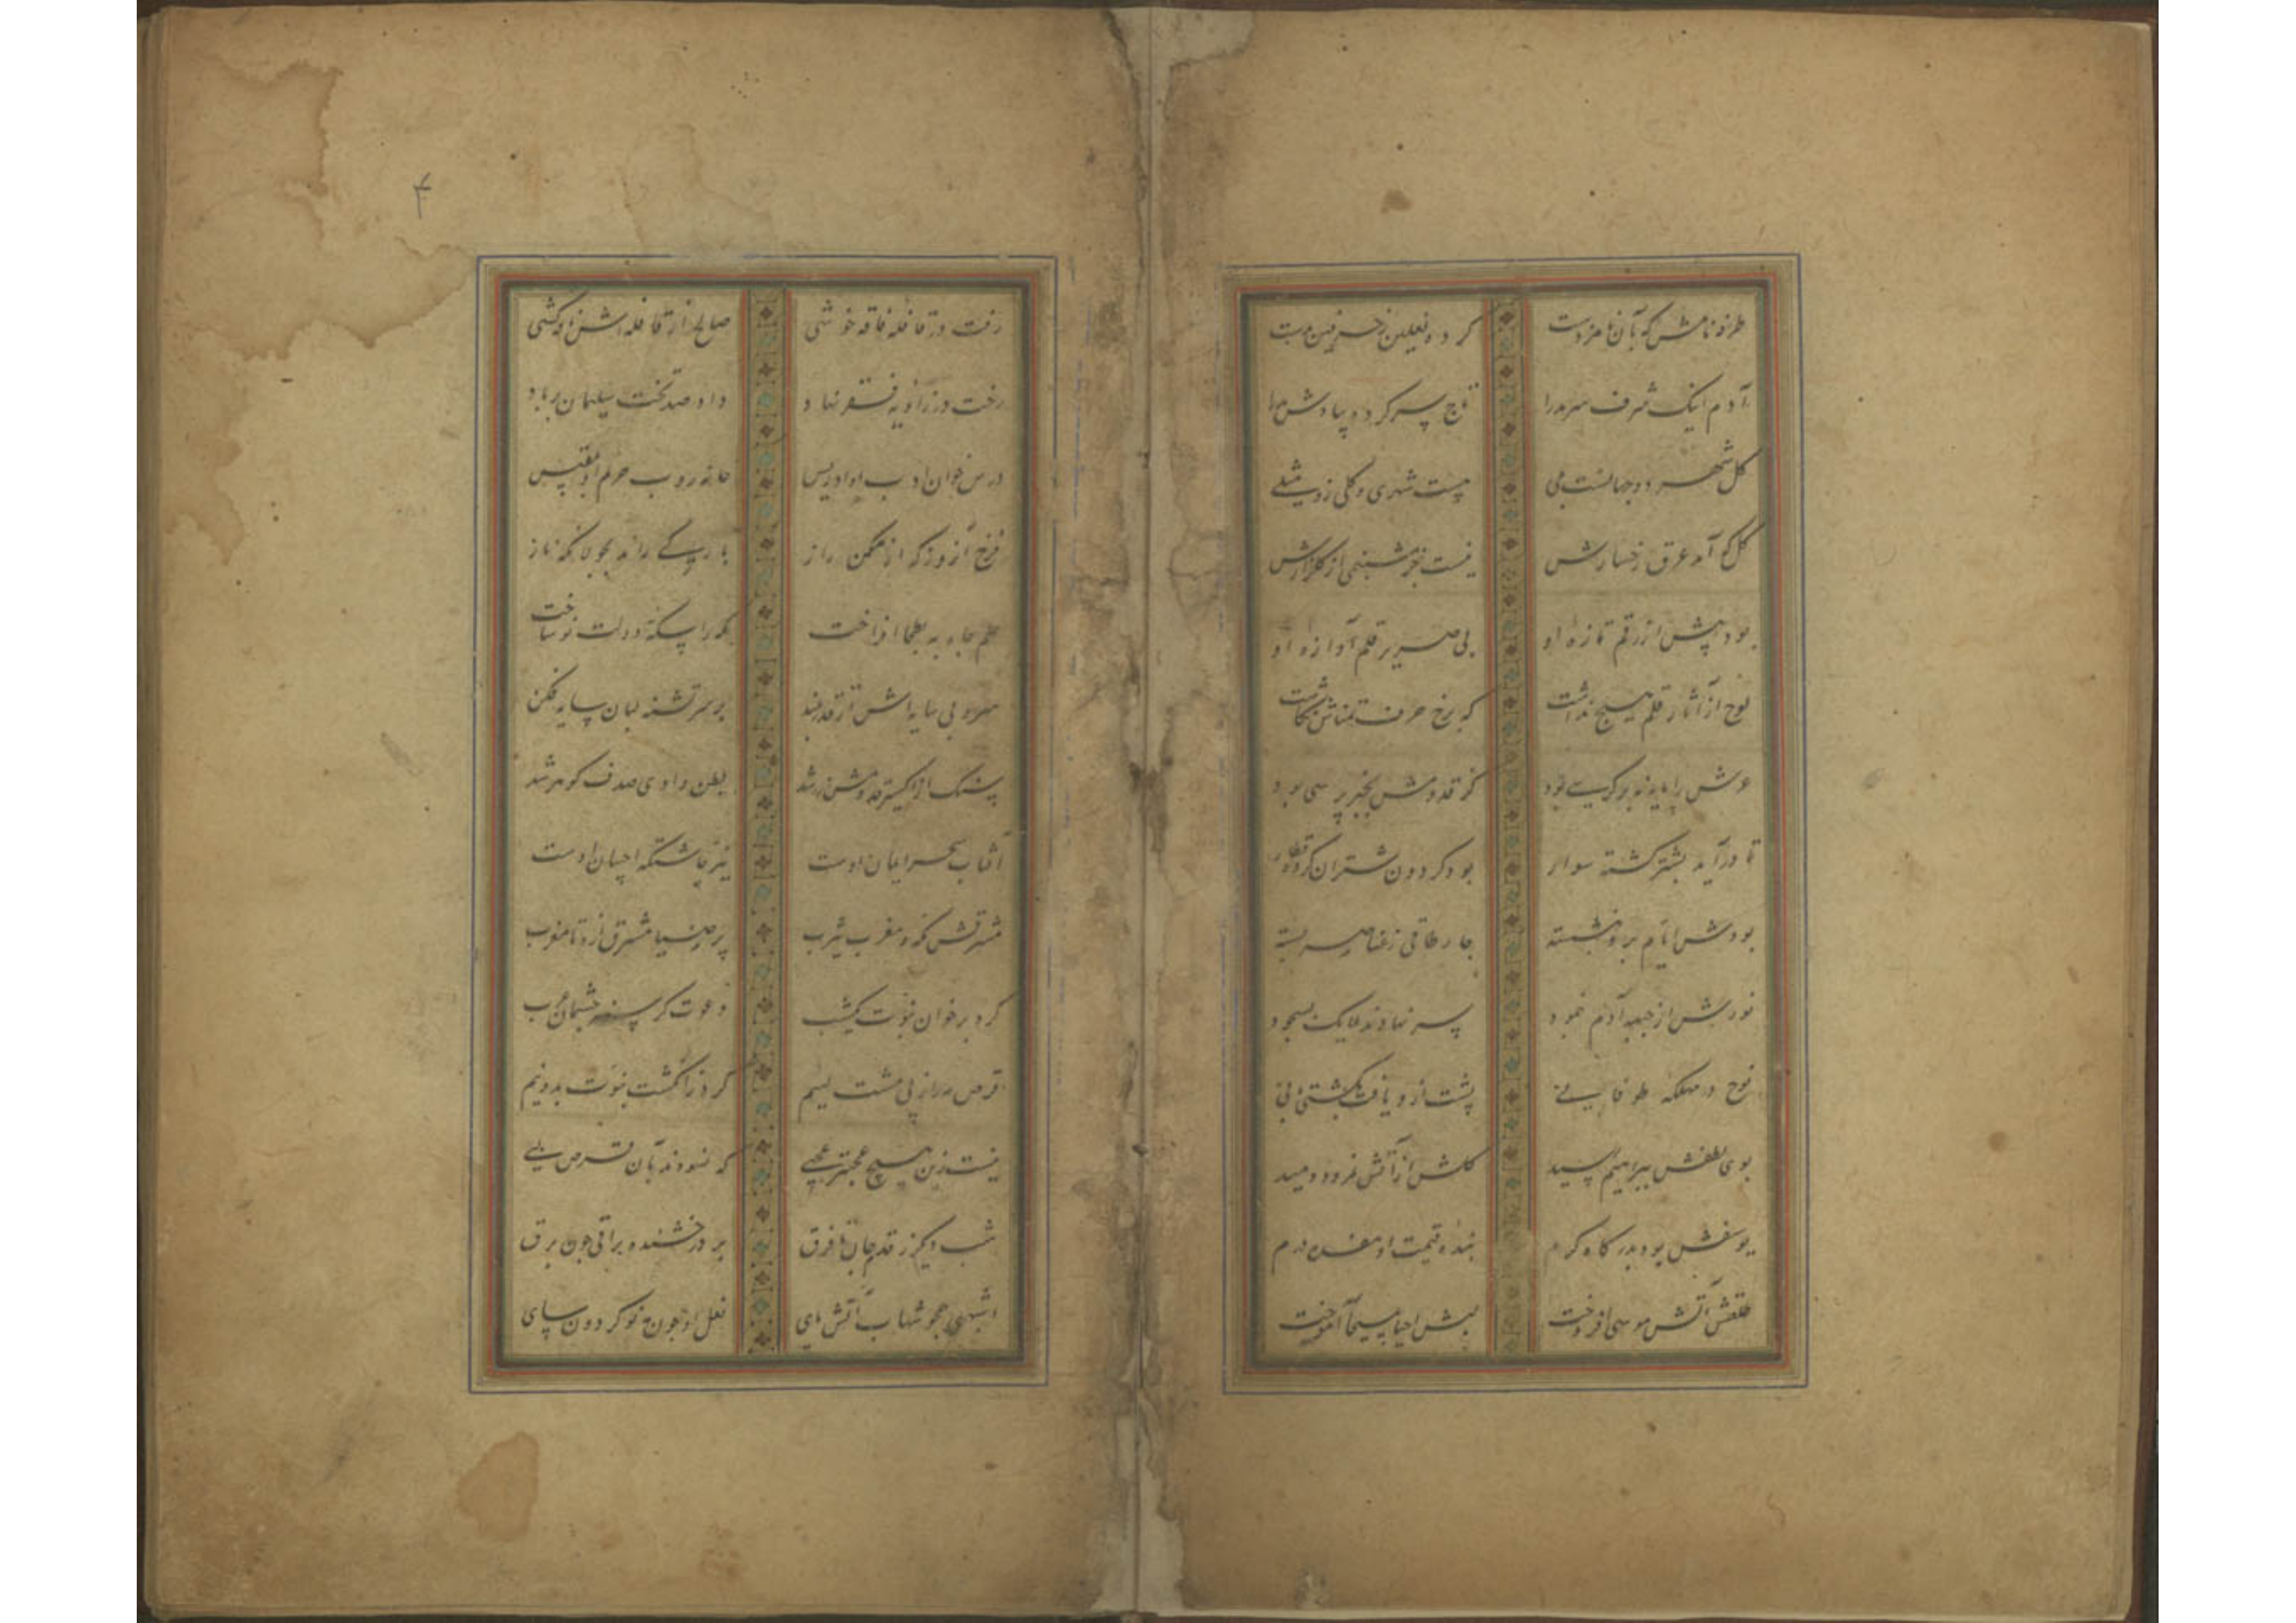 طرفه نامش که بآن نامزدست کرده نعلین
آدم اینک شرف سرمد را تاج سر کرده
کل شهر دو جهانست چیست شهری و کلی زو مثلی
کل که آمد عرق رخسارش نیست جز شبنمی از کلزارش
بود پیش از رقم تازه او بی صریر قلم آوازه او
لوح از آثار قلم هیچ نداشت که برخ حرف تمناش نکاشت
عرش را پایه نه بر کرسی بود کز قدومش بخبر پرسی بود
تا درآید بشتر کشته سوار بود کردون شتران کرده قطار
بودش ایام برو بنشسته چار طاقی ز عناصر بسته
نورش از جبهه آدم نمود سر نهادند ملایک بسجود
نوح در مهلکه طوفانی پشت ازو یافت بکشتی بانی
بوی لطفش ببراهیم رسید کلش از آتش نمرود دمید
یوسفش بود بدرکاه کرم بنده قیمت او هفده درم
آتش موسی افروخت لبش احیا بمسیحا آموخت
۴
رفت در قافله فاقه خوشی صالح از قافله اش ناقه کشی
رخت در زاویه فقر نهاد داد صد تخت سلیمان بر باد
درس خوان ادب او ادریس خانه روب حرم او بلقیس
فرخ آن روز که از مکمن راز باركی راند بجولانکه ناز
علم جاه به بطحا افراخت مکه را سکه دولت نو ساخت
سرو بی سایه اش از قد بلند بر سر تشنه لبان سایه فکن
سنک از اکسیر قدومش زر شد بطن وادی صدف کوهر شد
آفتاب سحر ایمان اوست نیر چاشتکه احسان اوست
مشرقش مکه و مغرب یثرب پر ضیا مشرق ازو تا مغرب
کرد بر خوان نبوت یکشب دعوت کرسنه چشمان عرب
قرص مه را ز پی مشت لئیم کرد ز انکشت نبوت بدو نیم
نیست زین هیچ عجبتر عجبی که نسودند بآن قرص لبی
شب دیکر ز قدم جان تا فرق بر درخشنده براقی چون برق
اشهبی همچو شهاب آتش پای نعل او چون مه نو کردون سای